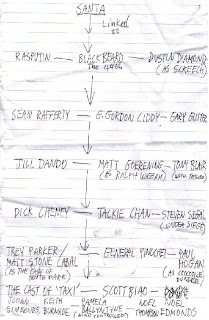 SANTA
Linked
to
RASPUTIN — BLACKBEARD — DUSTIN DIAMOND
(AS SCREECH)
SEAN RAFFERTY — G. GORDON LIDDY — GARY GLITTER
JILL DANDO — MATT GROENING — TONY BLAIR
(AS RALPH WIGGUM)
DICK CHENEY — JACKIE CHAN — STEVEN SEGAL
(UNDER SIEGE)
TREY PARKER/ — GENERAL PINOCHET — PAUL
MATT STONE CABAL HOGAN
(AS THE CAST OF (AS CROCODILE
SOUTH PARK) DUNDEE)
THE CAST OF 'TAXI' — SCOTT BIAO —
JULIAN KEITH PAMELA NOEL NOEL
SIMMONDS BURNANDE BALLANTYNE THOMSON EDMONDS